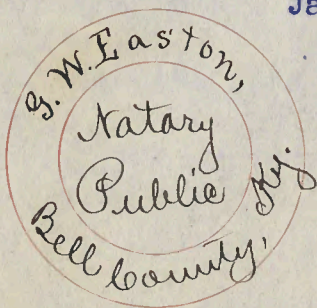 Ja
G. W. Easton,
Natary
Public
Bell County, Ky.